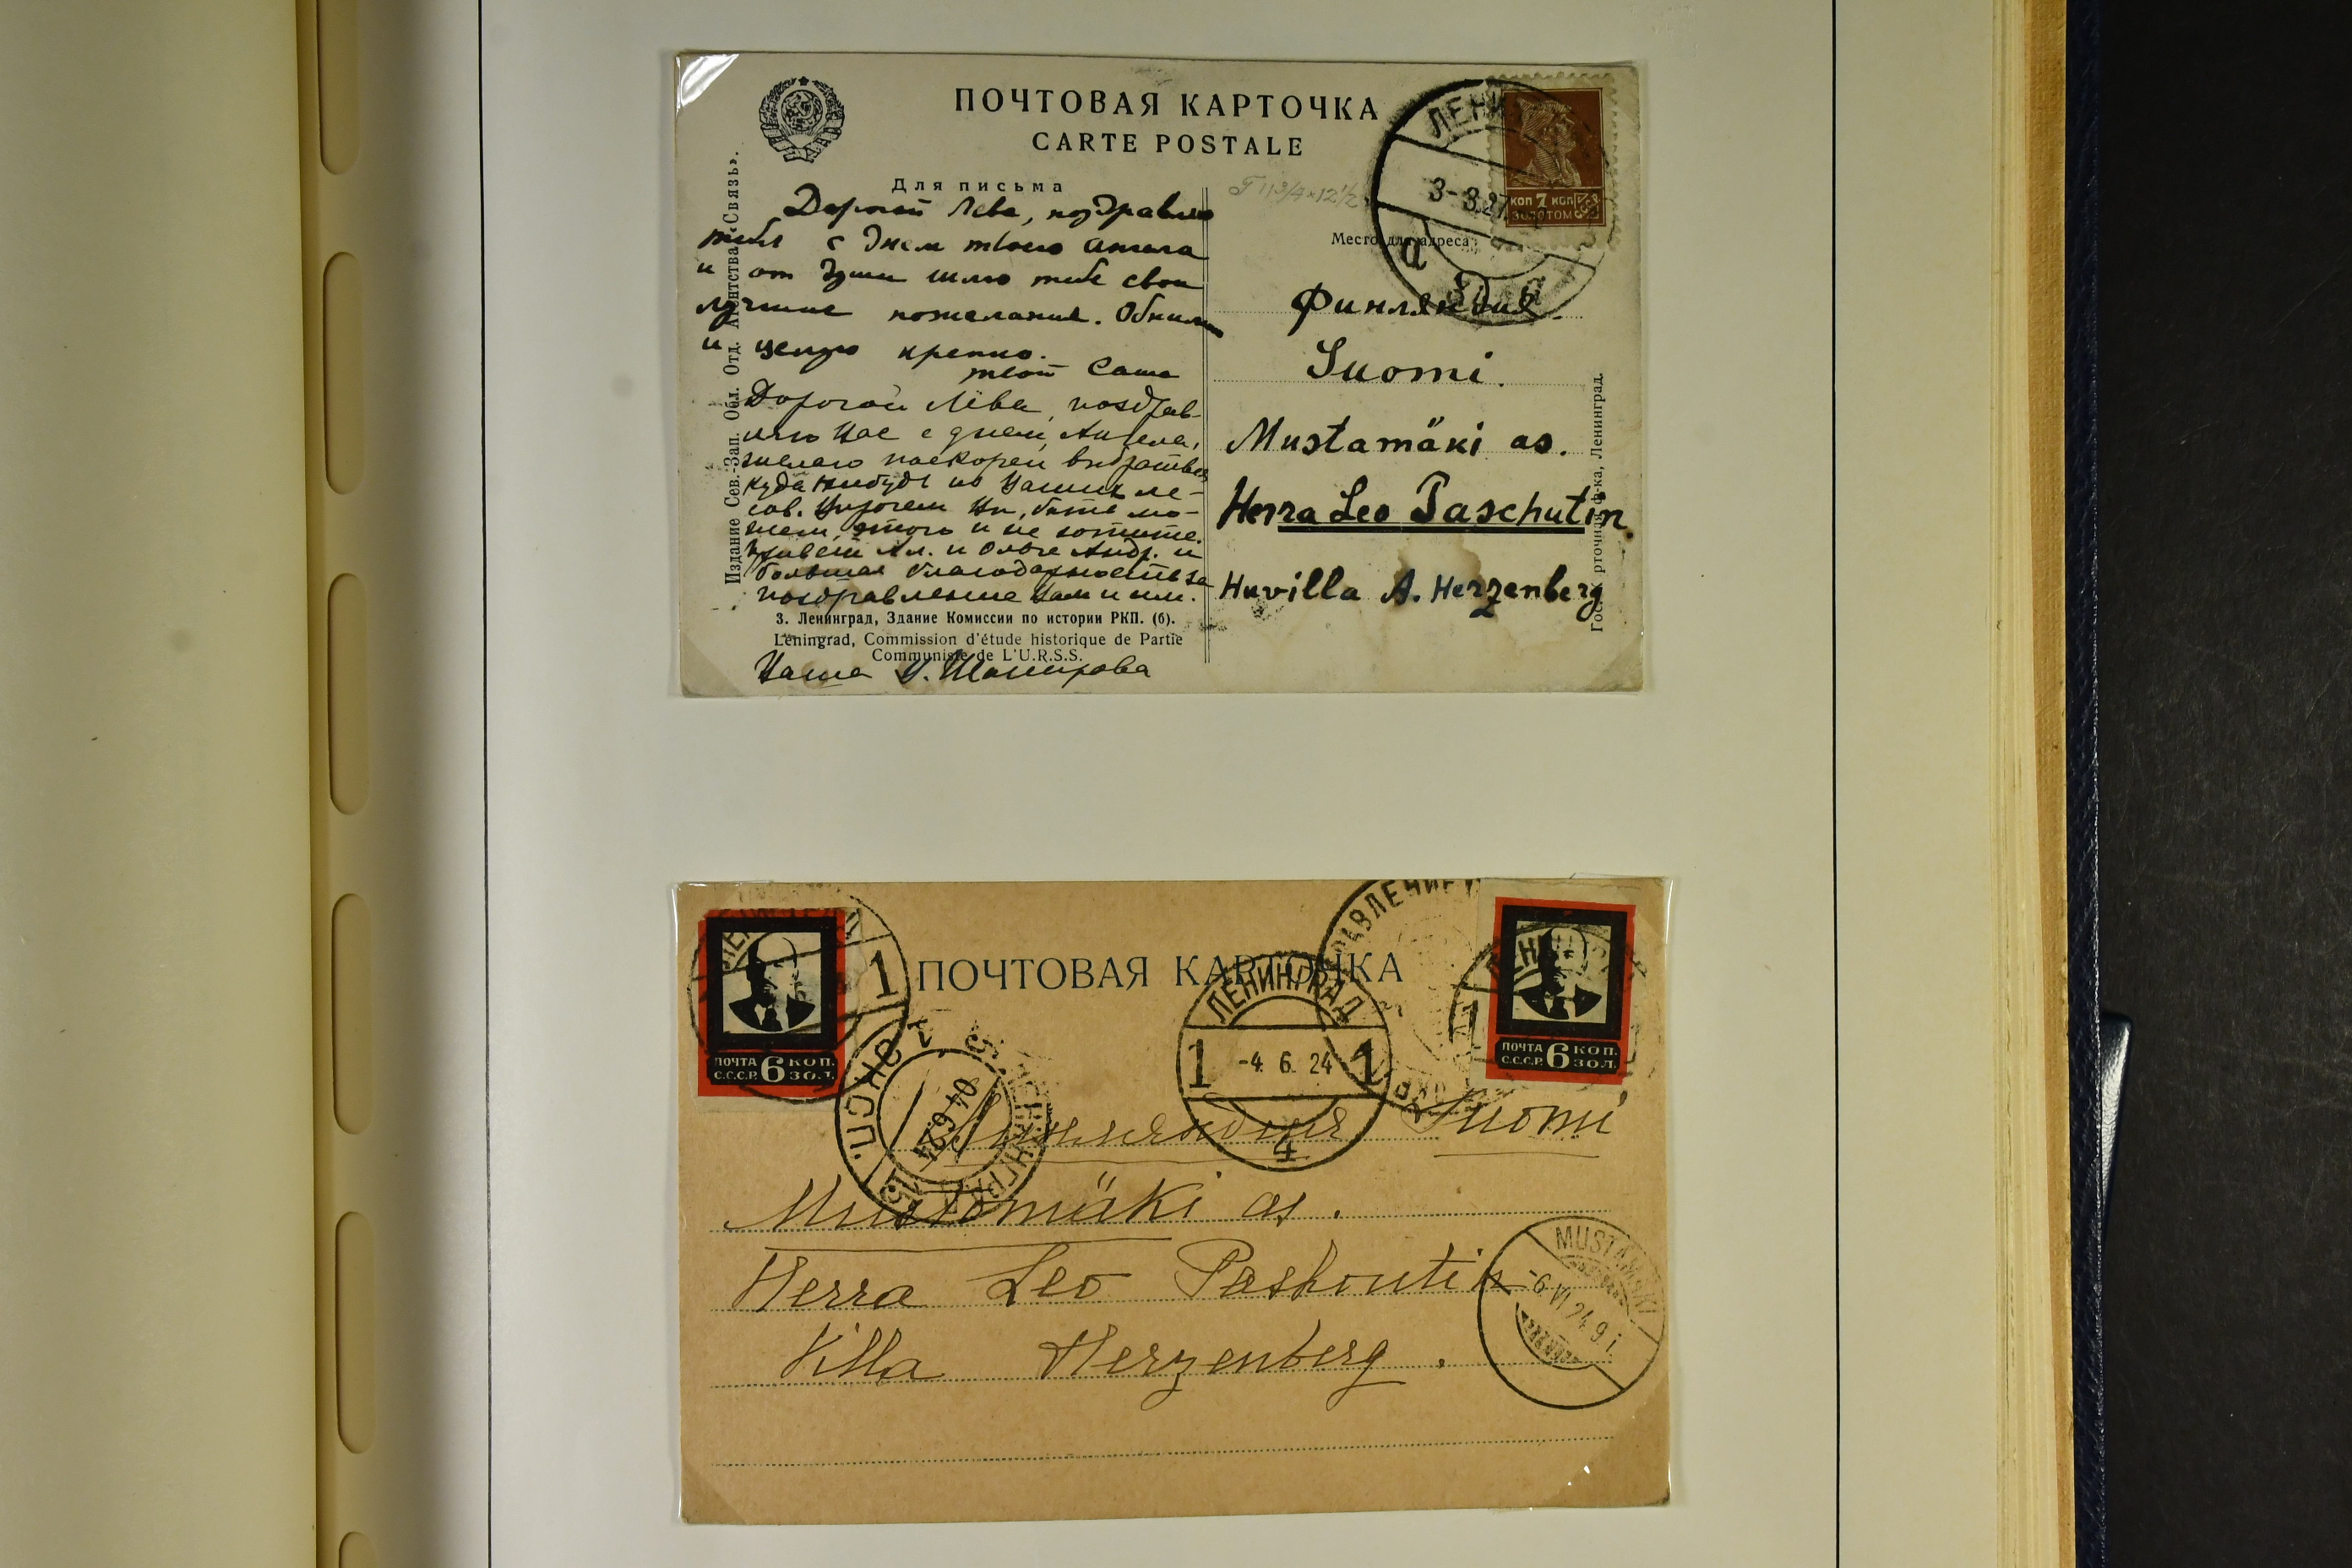 ПОЧТОВАЯ КАРТОЧКА
CARTE POSTALE
Для письма
Дорогой Лева, поздравляю
тебя с днем твоего ангела
и от души шлю тебе свои
лучшие пожелания. Обнимаю
и целую крепко.
твой Саша
Дорогой Лёва, поздрав-
ляю Вас с днем Ангела,
желаю поскорей выбраться
куда нибудь из Ваших ле-
сов. Впрочем Вы, быть мо-
жет, этого и не хотите.
Привет Ал. и Ольге Андр. и
большая благодарность за
поздравление Вам и им.
3. Ленинград, Здание Комиссии по истории РКП. (б).
Léningrad, Commission d'étude historique de Partie
Communiste de L'U.R.S.S.
Ваша
Издание Сев.-Зап. Обл. Отд. Агентства «Связь».
Г 11 3/4 × 12 1/2
ЛЕНИ
3-3.27
а
КОП 7 КОП
ЗОЛОТОМ
Место для адреса:
Финляндия.
Suomi.
Mustamäki as.
Herra Leo Paschutin.
Huvilla A. Herzenberg
Ленинград.
ПОЧТОВАЯ КАРТОЧКА
ПОЧТА 6 КОП.
С.С.С.Р. ЗОЛ.
1
ЛЕНИНГРАД
1 -4. 6. 24 1
4
04 6 24
ПОЧТА 6 КОП.
С.С.С.Р. ЗОЛ.
1
Финляндия Suomi
Mustamäki as.
Herra Leo Pashoutin
Villa Herzenberg.
MUSTAMÄKI
-6 VI 24 9 i.